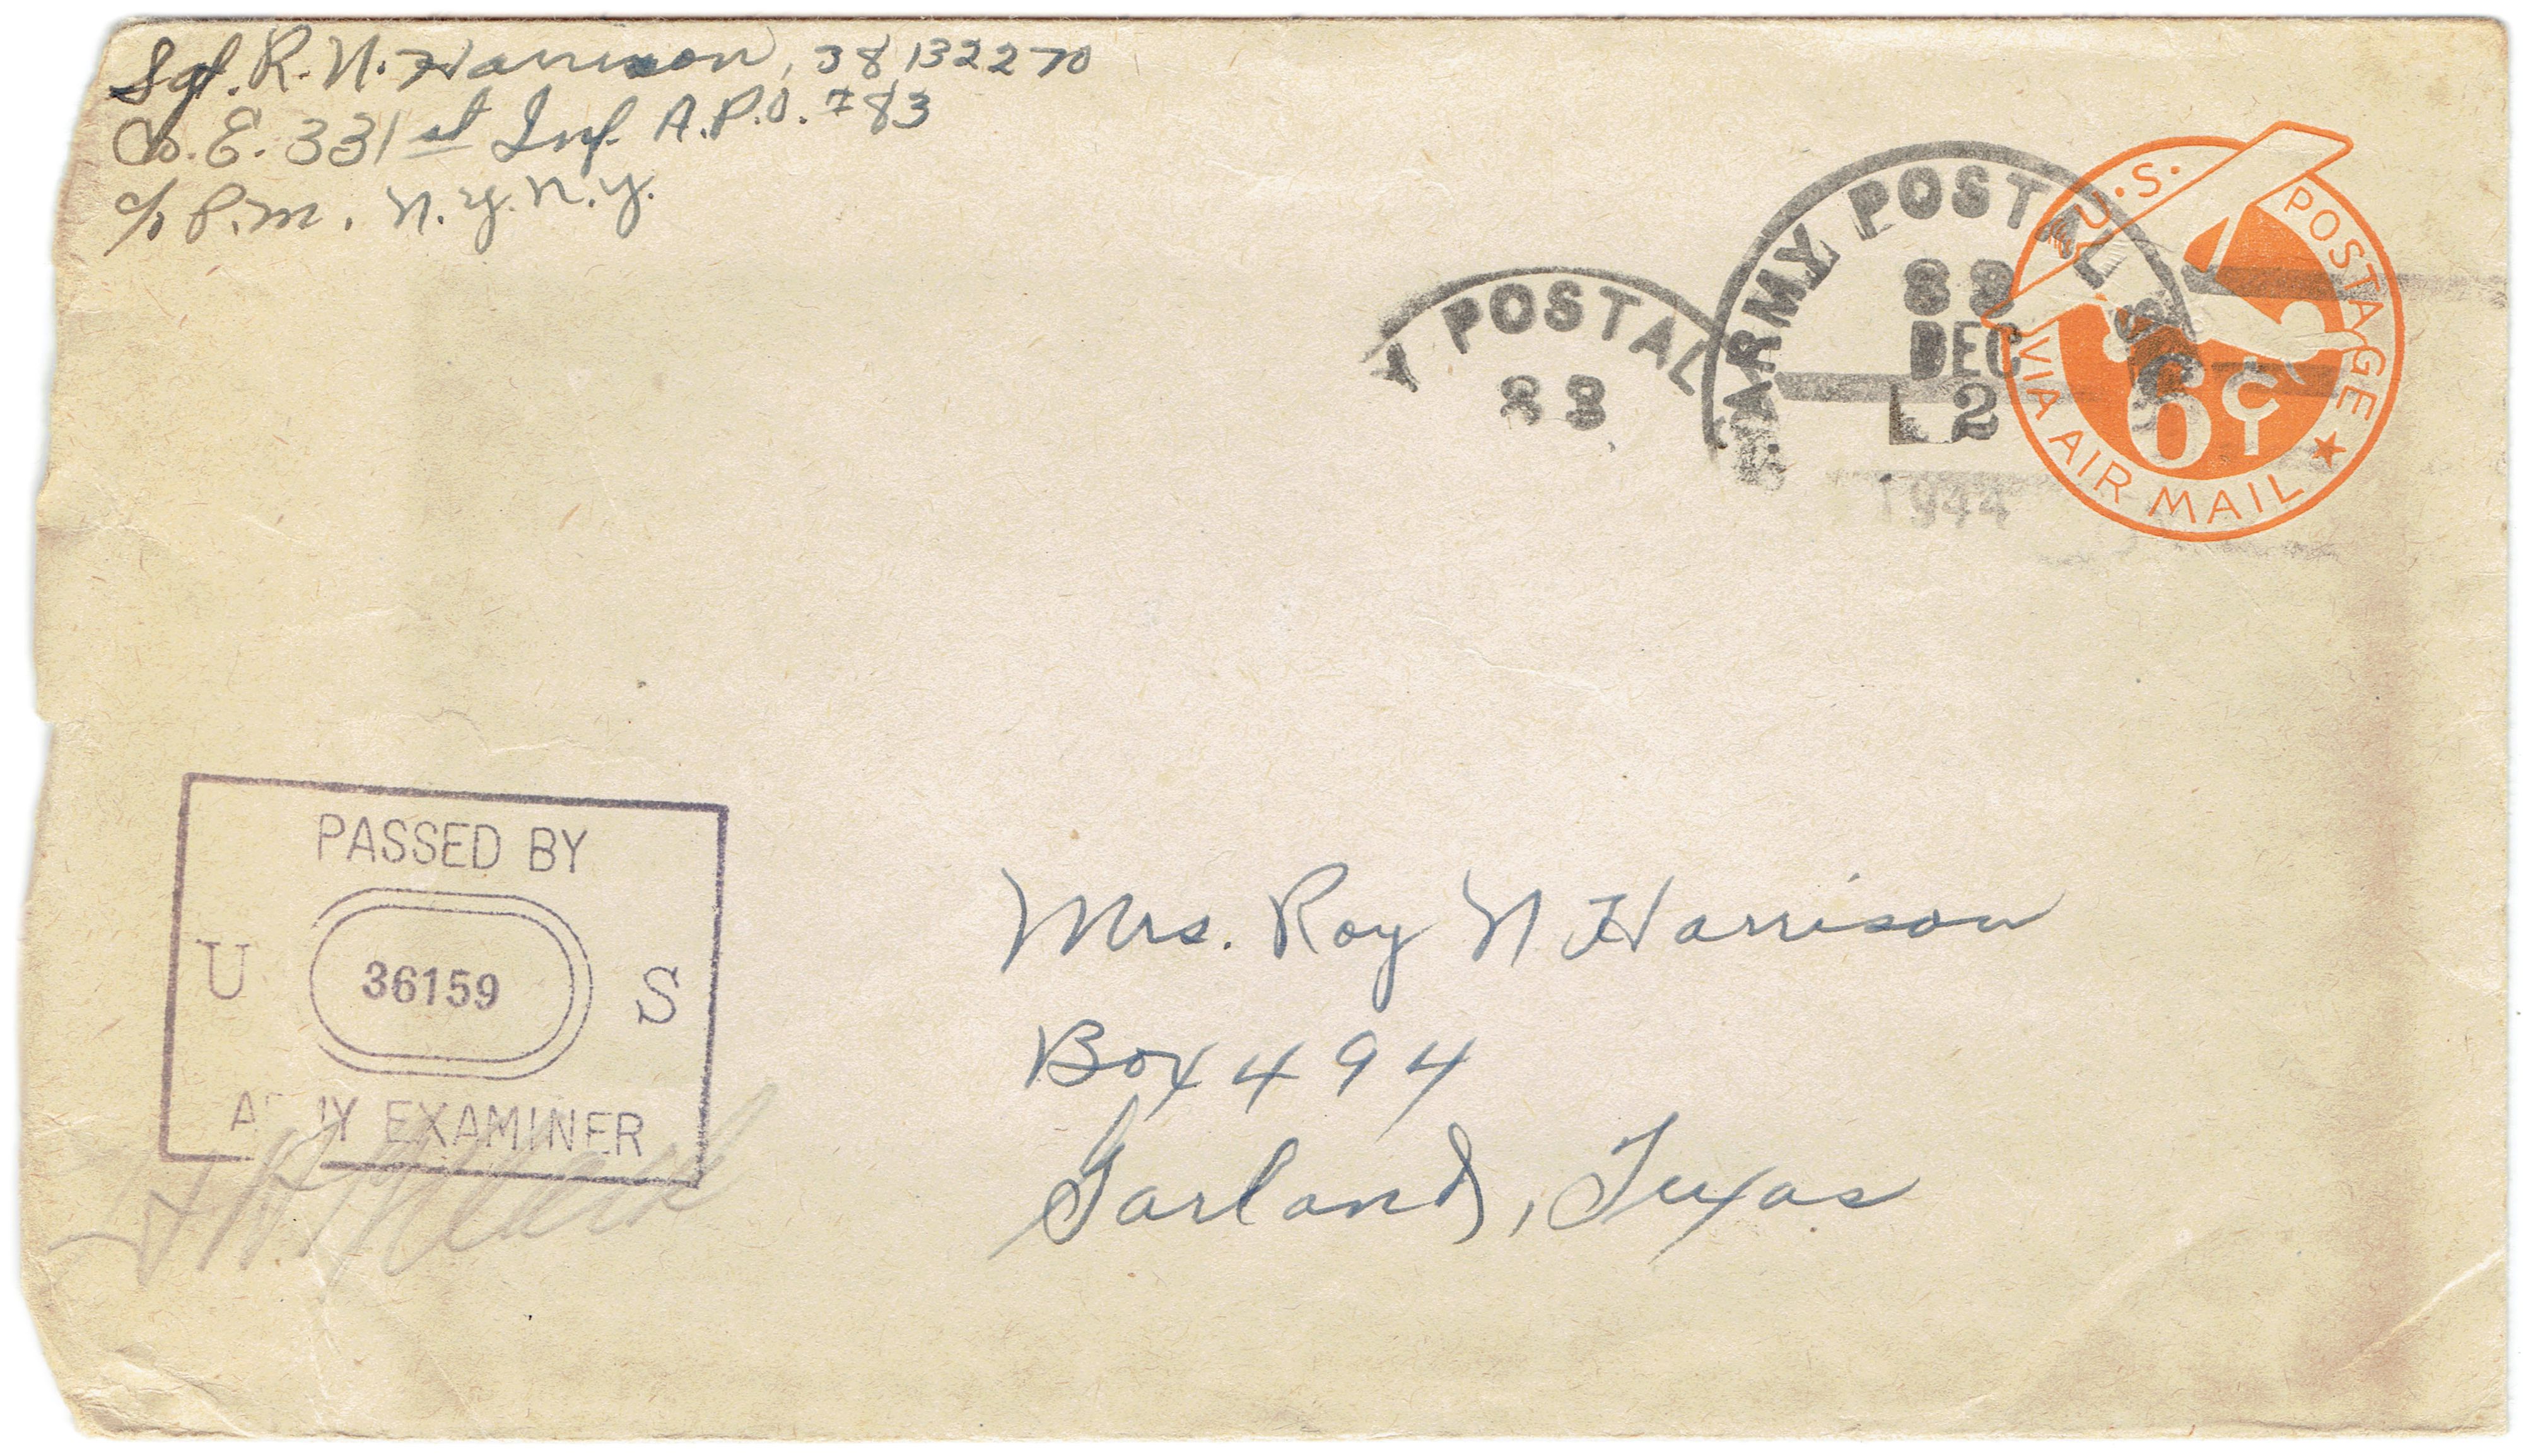 Sgt. R. N. Harrison, 38132270
Co. E. 331st Inf. A.P.O. #83
c/o P.M. N.Y. N.Y.
Y POSTAL
83
ARMY POSTAL
83
DEC
2
1944
U.S. POSTAGE
VIA AIR MAIL
6¢
PASSED BY
U 36159 S
ARMY EXAMINER
Mrs. Roy N Harrison
Box 494
Garland, Texas